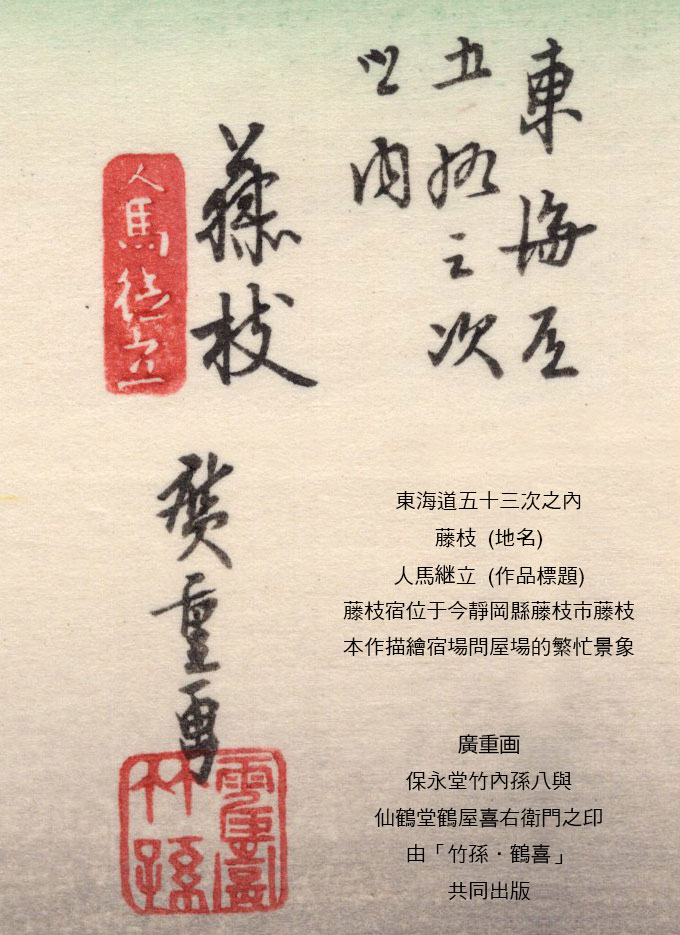 東海道
五拾三次
之内
藤枝
人馬継立
廣重画
竹孫
東海道五十三次之內
藤枝 (地名)
人馬継立 (作品標題)
藤枝宿位于今靜岡縣藤枝市藤枝
本作描繪宿場問屋場的繁忙景象
廣重画
保永堂竹內孫八與
仙鶴堂鶴屋喜右衛門之印
由「竹孫・鶴喜」
共同出版